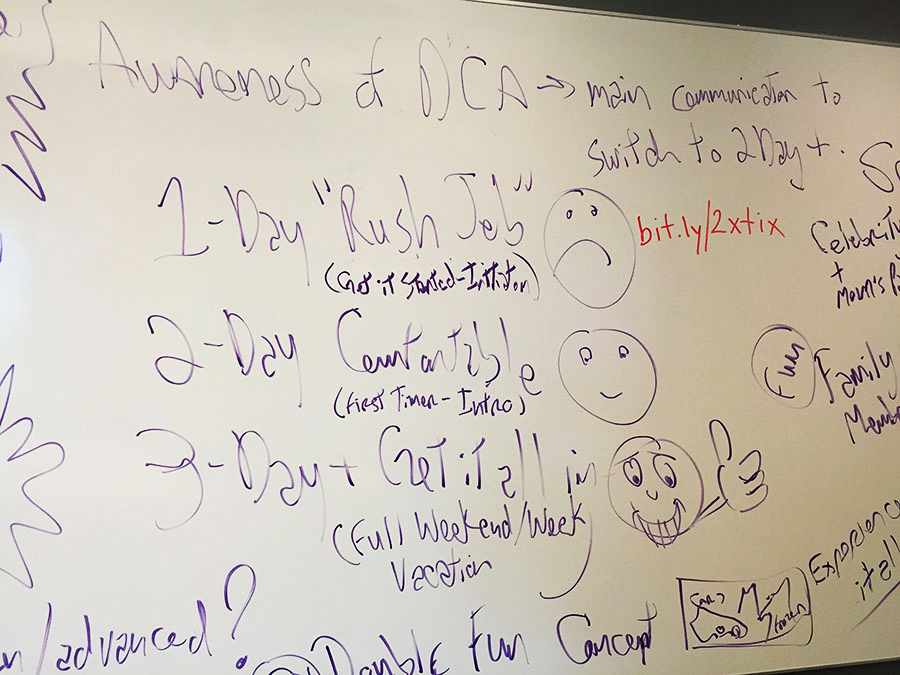 Awareness of DCA → main communication to
switch to 2 Day +.
1-Day "Rush Job"
bit.ly/2xtix
(Get it Started-Initiation)
Celebrity
+
Mom's
2-Day Comfortable
(First Timer - Intro)
Fun
Family
3-Day + Get it all in
(Full Weekend/Week
Vacation
Experience
it all
/advanced?
Double Fun Concept
Cars
Frozen